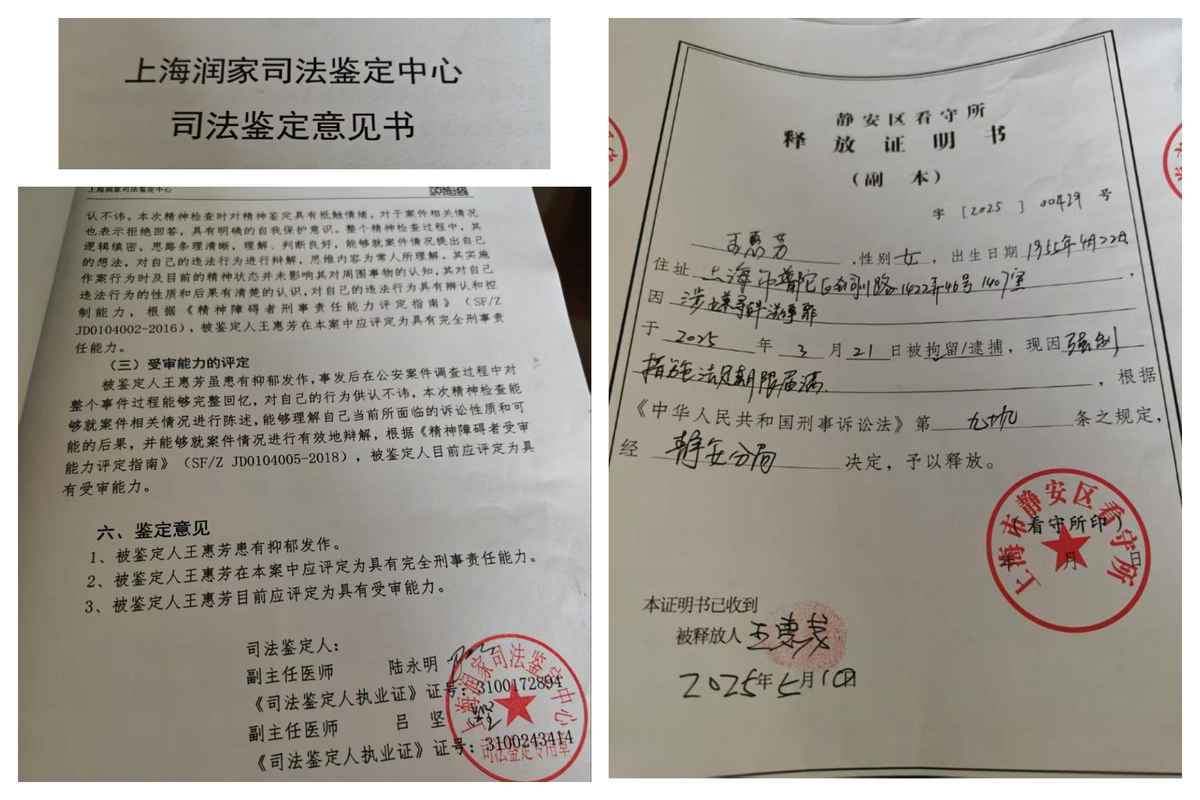 上海润家司法鉴定中心
司法鉴定意见书
上海润家司法鉴定中心
认不讳。本次精神检查时对精神鉴定具有抵触情绪，对于案件相关情况
也表示拒绝回答，具有明确的自我保护意识。整个精神检查过程中，其
逻辑缜密，思路条理清晰，理解、判断良好，能够就案件情况提出自己
的想法，对自己的违法行为进行辩解，思维内容为常人所理解。其实施
作案行为时及目前的精神状态并未影响其对周围事物的认知，其对自己
违法行为的性质和后果有清楚的认识，对自己的违法行为具有辨认和控
制能力，根据《精神障碍者刑事责任能力评定指南》（SF/Z
JD0104002-2016），被鉴定人王惠芳在本案中应评定为具有完全刑事责
任能力。
（三）受审能力的评定
被鉴定人王惠芳虽患有抑郁发作，事发后在公安案件调查过程中对
整个事件过程能够完整回忆，对自己的行为供认不讳。本次精神检查能
够就案件相关情况进行陈述，能够理解自己当前所面临的诉讼性质和可
能的后果，并能够就案件情况进行有效地辩解，根据《精神障碍者受审
能力评定指南》（SF/Z JD0104005-2018），被鉴定人目前应评定为具
有受审能力。
六、鉴定意见
1、被鉴定人王惠芳患有抑郁发作。
2、被鉴定人王惠芳在本案中应评定为具有完全刑事责任能力。
3、被鉴定人王惠芳目前应评定为具有受审能力。
司法鉴定人：
副主任医师 陆永明
《司法鉴定人执业证》证号：3100172894
副主任医师 吕 坚
《司法鉴定人执业证》证号：3100243414
上海润家司法鉴定中心
司法鉴定专用章
静安区看守所
释放证明书
（副 本）
字 [2025] 00429 号
王惠芳，性别 女，出生日期 1955年4月22日
住址 上海市普陀区 路1422弄46号1407室，
因 涉嫌寻衅滋事罪
于 2025 年 3 月 21 日被拘留/逮捕，现因 强制
措施法定期限届满，根据
《中华人民共和国刑事诉讼法》第 九十九 条之规定，
经 静安分局 决定，予以释放。
（看守所印）
年 月 日
上海市静安区看守所
本证明书已收到
被释放人 王惠芳
2025年 月 日